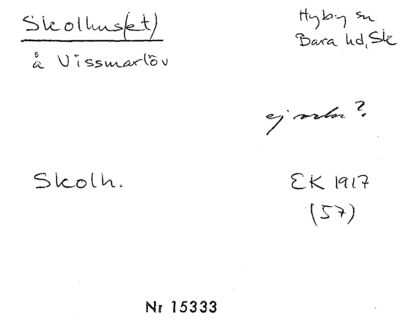 Skolhus(et)
å Vissmarlöv
Hyby sn
Bara hd, Sk
ej
?
Skolh.
EK 1917
(57)
Nr 15333